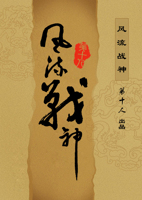 风流战神
风流战神
第十人 出品